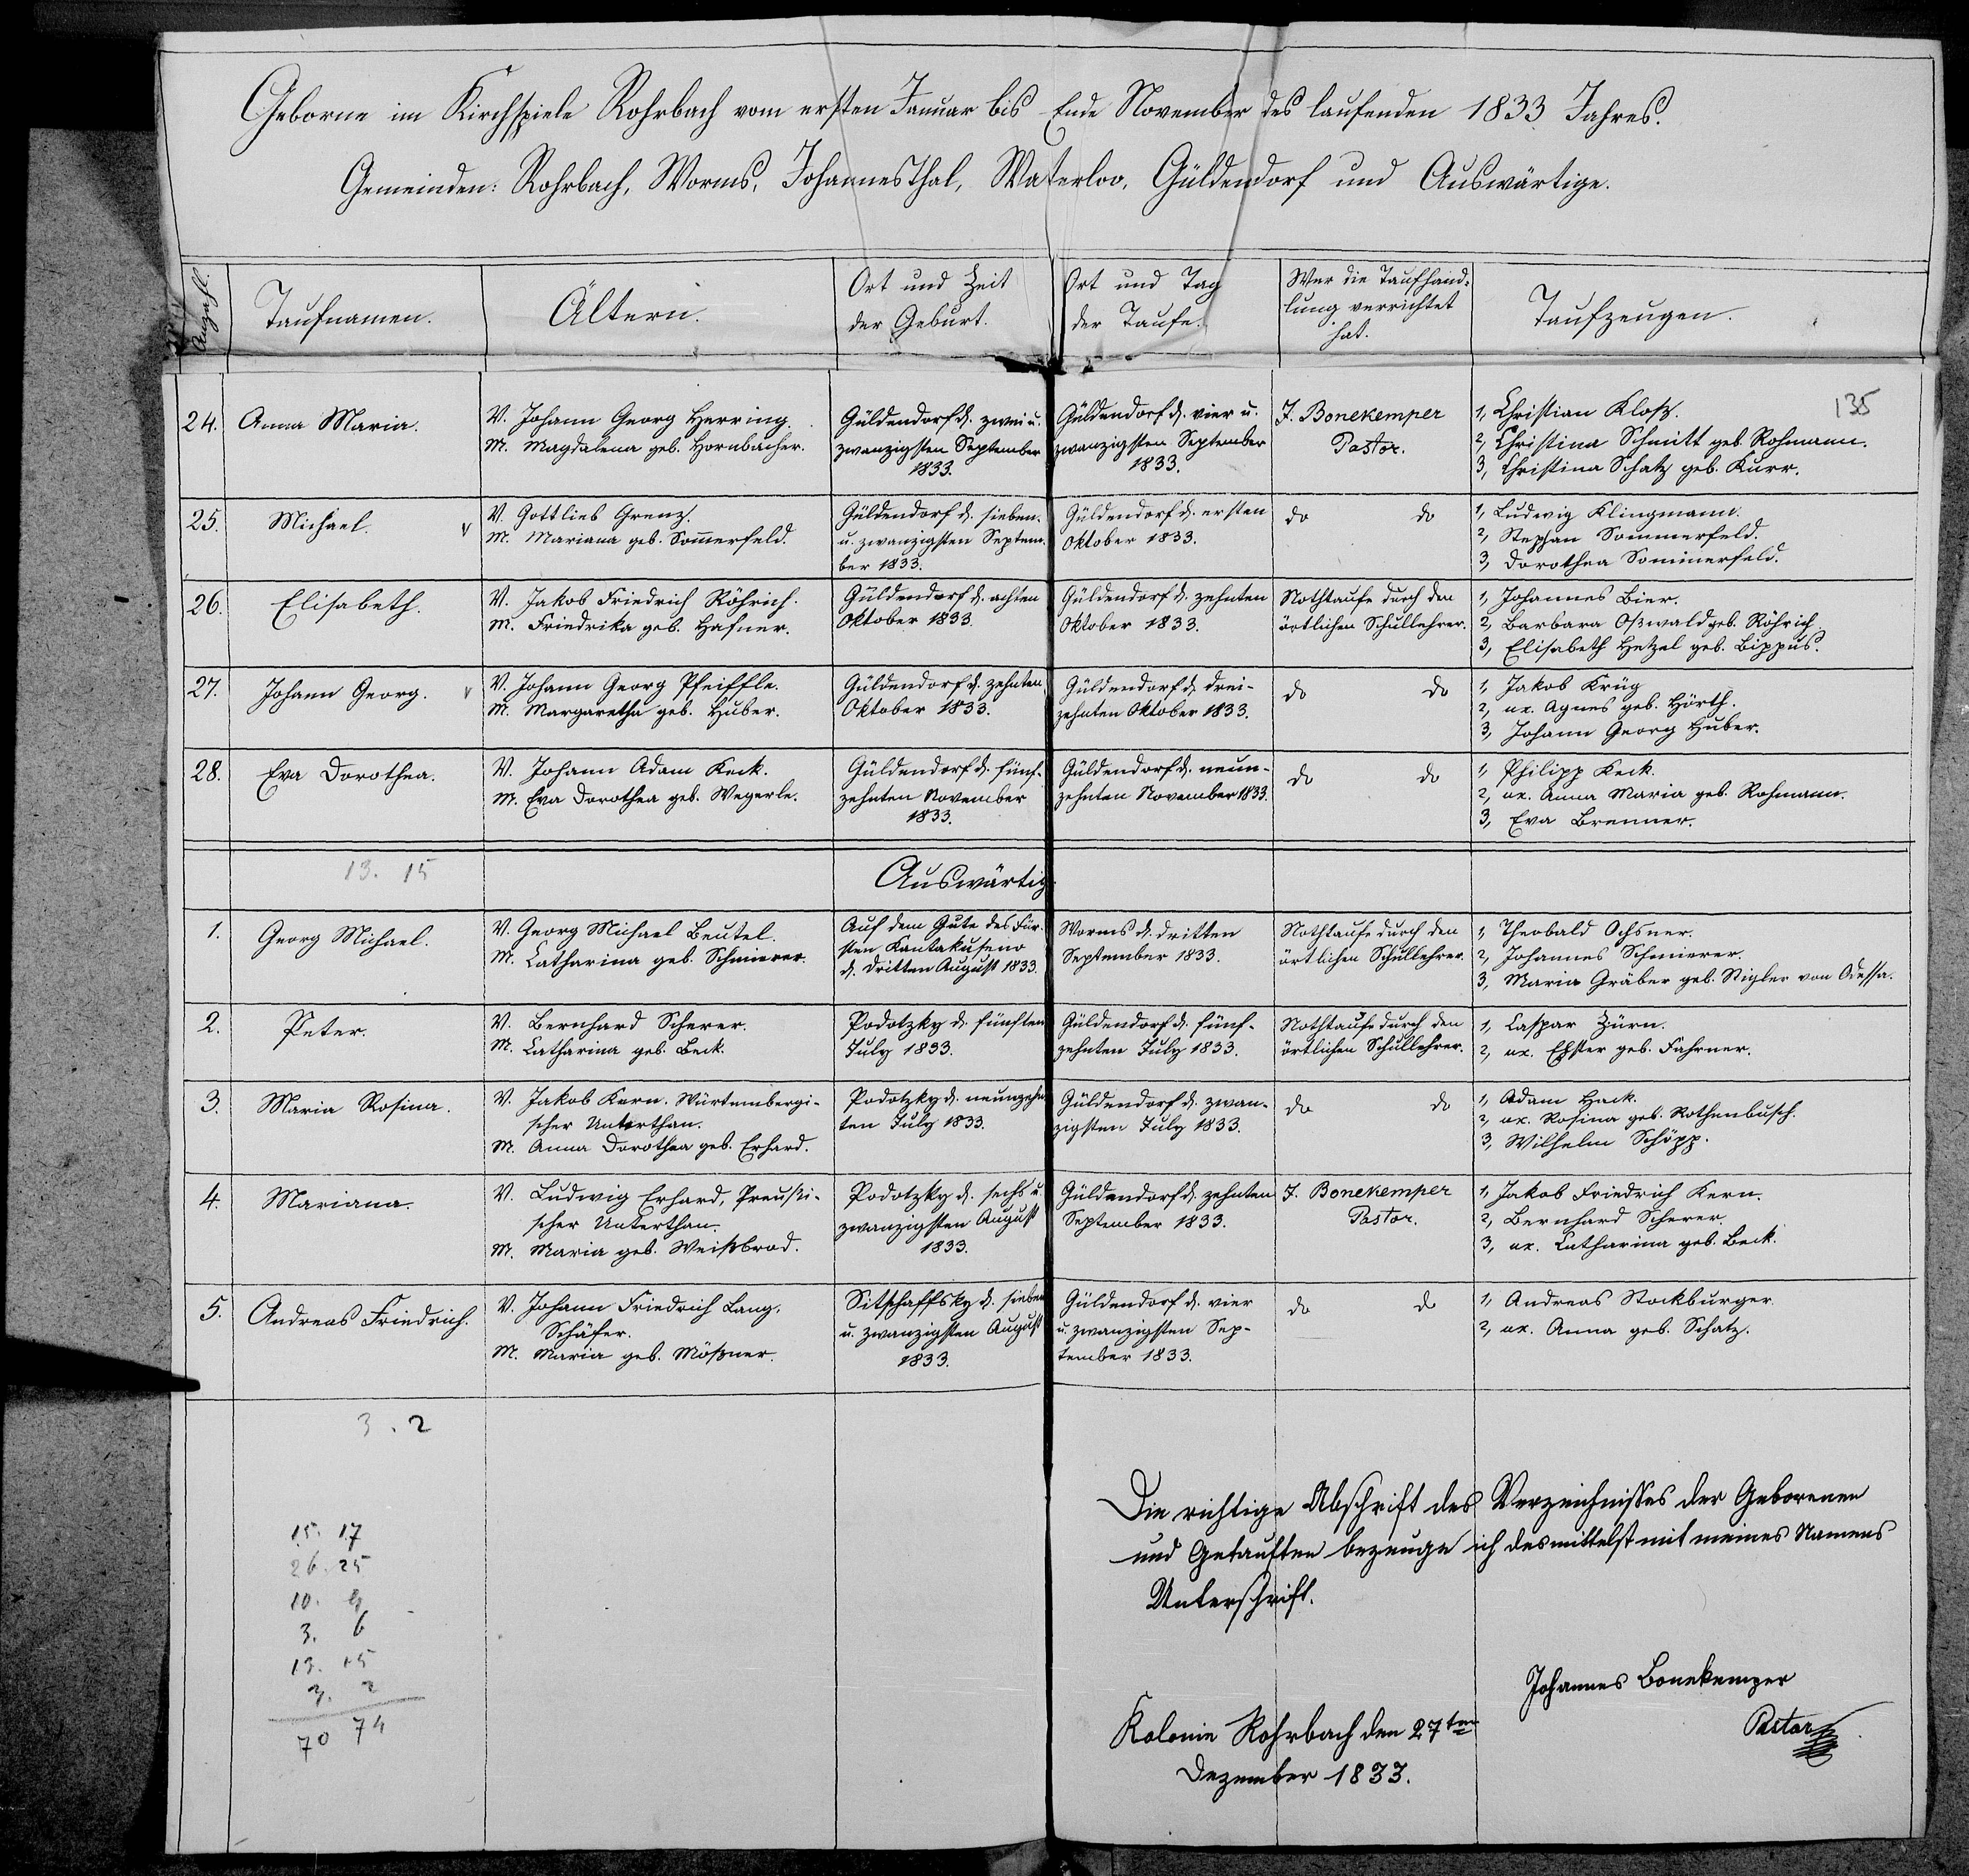 Geborne im Kirchspiele Rohrbach vom ersten Januar bis Ende November des laufenden 1833 Jahres.
Gemeinden: Rohrbach, Worms, Johannesthal, Waterloo, Güldendorf und Auswärtige.
Anzahl.
Taufnamen.
Ältern.
Ort und Zeit
der Geburt.
Ort und Tag
der Taufe.
Wer die Taufhand-
lung verrichtet
hat.
Taufzeugen.
135
24.
Anna Maria.
V. Johann Georg Herring.
M. Magdalena geb. Hornbacher.
Güldendorf d. zwei u.
zwanzigsten September
1833.
Güldendorf d. vier u.
zwanzigsten September
1833.
J. Bonekemper
Pastor.
1, Christian Klotz.
2, Christina Schmitt geb. Rohmann.
3, Christina Schatz geb. Kurr.
25.
Michael.
V
V. Gottlieb Grenz.
M. Mariana geb. Sommerfeld.
Güldendorf d. sieben-
u. zwanzigsten Septem-
ber 1833.
Güldendorf d. ersten
Oktober 1833.
do do
1, Ludwig Klingmann.
2, Stephan Sommerfeld.
3, Dorothea Sommerfeld.
26.
Elisabeth.
V. Jakob Friedrich Röhrich.
M. Friedrika geb. Hafner.
Güldendorf d. achten
Oktober 1833.
Güldendorf d. zehnten
Oktober 1833.
Nothtaufe durch den
örtlichen Schullehrer.
1, Johannes Bier.
2, Barbara Oßwald geb. Röhrich.
3, Elisabeth Hetzel geb. Bippus.
27.
Johann Georg.
V
V. Johann Georg Pfeiffle.
M. Margaretha geb. Huber.
Güldendorf d. zehnten
Oktober 1833.
Güldendorf d. drei-
zehnten Oktober 1833.
do do
1, Jakob Krüg
2, ux. Agnes geb. Hörth.
3, Johann Georg Huber.
28.
Eva Dorothea.
V. Johann Adam Keck.
M. Eva Dorothea geb. Wegerle.
Güldendorf d. fünf-
zehnten November
1833.
Güldendorf d. neun-
zehnten November 1833.
do do
1, Philipp Keck.
2, ux. Anna Maria geb. Rohmann.
3, Eva Brenner.
13. 15
Auswärtig
1.
Georg Michael.
V. Georg Michael Beutel.
M. Catharina geb. Schmierer.
Auf dem Gute des Für-
sten Kantakuseno
d. dritten August 1833.
Worms d. dritten
September 1833.
Nothtaufe durch den
örtlichen Schullehrer.
1, Theobald Ochsner.
2, Johannes Schmierer.
3, Maria Gräber geb. Stigler von Odessa.
2.
Peter.
V. Bernhard Scherer.
M. Catharina geb. Beck.
Podotzky d. fünften
July 1833.
Güldendorf d. fünf-
zehnten July 1833.
Nothtaufe durch den
örtlichen Schullehrer.
1, Caspar Zürn.
2, ux. Ehster geb. Fahrner.
3.
Maria Rosina.
V. Jakob Kern. Würtembergi-
scher Unterthan.
M. Anna Dorothea geb. Erhard.
Podotzky d. neunzehn
ten July 1833.
Güldendorf d. zwan-
zigsten July 1833.
do do
1, Adam Hack.
2, ux. Rosina geb. Rothenbusch.
3, Wilhelm Schöpp.
4.
Mariana.
V. Ludwig Erhard, Preußi-
scher Unterthan.
M. Maria geb. Weißbrod.
Podotzky d. sechs u.
zwanzigsten August
1833.
Güldendorf d. zehnten
September 1833.
J. Bonekemper
Pastor.
1, Jakob Friedrich Kern.
2, Bernhard Scherer.
3, ux. Catharina geb. Beck.
5.
Andreas Friedrich.
V. Johann Friedrich Lang,
Schäfer.
M. Maria geb. Mößner.
Sitschaffsky d. sieben
u. zwanzigsten August
1833.
Güldendorf d. vier
u. zwanzigsten Sep-
tember 1833.
do do
1, Andreas Stockburger.
2, ux. Anna geb. Schatz.
3. 2
15. 17
26. 25
10. 9
3. 6
13. 15
3. 2
70 74
Die richtige Abschrift des Verzeichnisses der Geborenen
und Getauften bezeuge ich desmittelst mit meines Namens
Unterschrift.
Johannes Bonekemper
Pastor
Kolonie Rohrbach den 27ten
Dezember 1833.